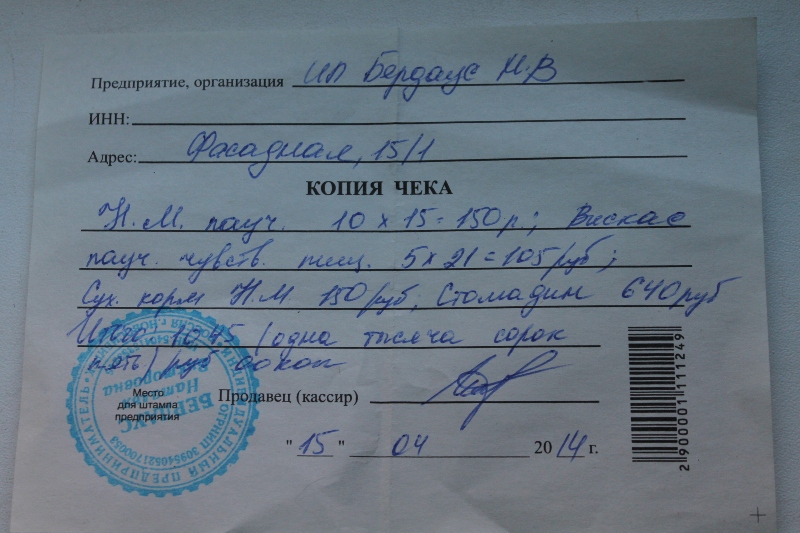 Предприятие, организация ИП Бердаус Н.В
ИНН:
Адрес: Фасадная, 15/1
КОПИЯ ЧЕКА
Н.М. пауч. 10 х 15 = 150 р.; Вискас
пауч. чувств. пищ. 5 х 21 = 105/руб;
Сух. корм Н.М. 150/руб, Стомадин 640руб
Итого 1045 /одна тысяча сорок
пять/ руб 00коп
Место
для штампа
предприятия
Продавец (кассир)
"15" 04 2014 г.
2 900001 111249
ИНДИВИДУАЛЬНЫЙ ПРЕДПРИНИМАТЕЛЬ